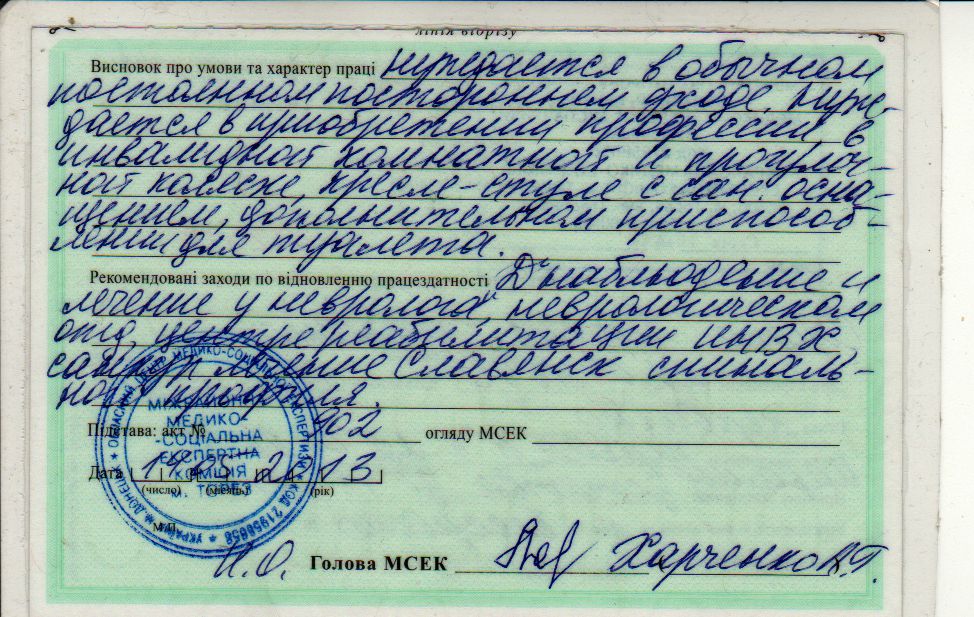 лінія відрізу
Висновок про умови та характер праці нуждается в обычном
постоянном постороннем уходе. Нуж-
дается в приобретении профессии, в
инвалидной комнатной и прогулоч-
ной коляске, кресле-стуле с сан. осна-
щением, дополнительном приспособ-
лении для туалета.
Рекомендовані заходи по відновленню працездатності "Д" наблюдение и
лечение у невролога, неврологическом
отд, центре реабилитации ИНВХ
сан кур лечение Славянск спиналь-
ного профиля.
Підстава: акт № 902 огляду МСЕК
Дата 2013
(число) (місяць) (рік)
М.П.
И.О. Голова МСЕК Харченко
МІЖРАЙОННА
МЕДИКО-
-СОЦІАЛЬНА
ЕКСПЕРТНА
КОМІСІЯ
м. ТОРЕЗ
ОБЛАСНИЙ ЦЕНТР МЕДИКО-СОЦІАЛЬНОЇ ЕКСПЕРТИЗИ * КОД * УКРАЇНА м. ДОНЕЦЬК *